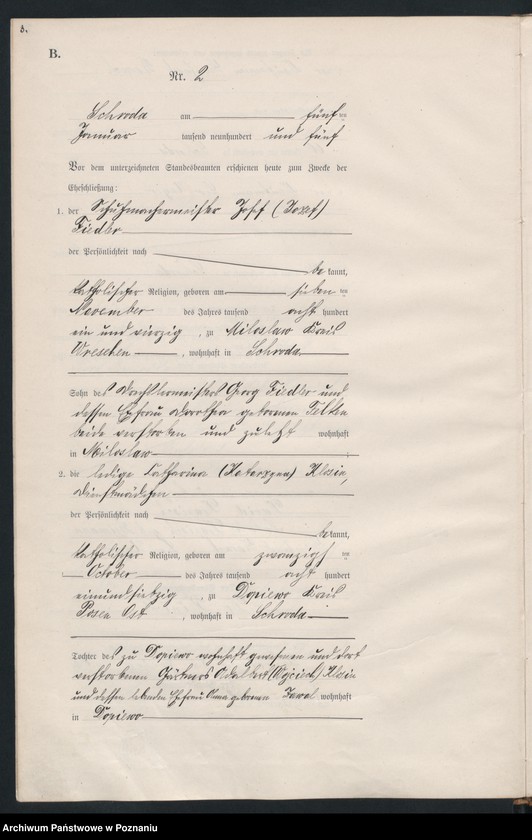 B.
Nr. 2
Schroda am fünften
Januar tausend neunhundert und fünf
Vor dem unterzeichneten Standesbeamten erschienen heute zum Zwecke der
Eheschließung:
1. der Schuhmachermeister Josef (Jozef)
Fiedler
der Persönlichkeit nach
bekannt,
katholischer Religion, geboren am sieben ten
November des Jahres tausend acht hundert
ein und vierzig, zu Miloslaw Kreis
Wreschen, wohnhaft in Schroda
Sohn des Drechslermeisters Georg Fiedler und
dessen Ehefrau Dorothea geborenen
beide verstorben und zuletzt wohnhaft
in Miloslaw
2. die ledige Catharina (Katarzyna) Klosin,
Dienstmädchen
der Persönlichkeit nach
bekannt,
katholischer Religion, geboren am zwanzigsten
October des Jahres tausend acht hundert
einundsiebzig, zu Dopiewo Kreis
Posen Ost, wohnhaft in Schroda
Tochter des zu Dopiewo wohnhaft gewesenen und dort
verstorbenen Gärtners Adalbert (Wojciech) Klosin
und dessen lebenden Ehefrau Anna geborenen wohnhaft
in Dopiewo
Archiwum Państwowe w Poznaniu